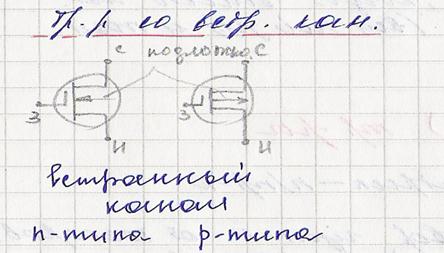 Тр-р со встр. кан.
С подложка С
З З
И И
встроенный
канал
n-типа p-типа